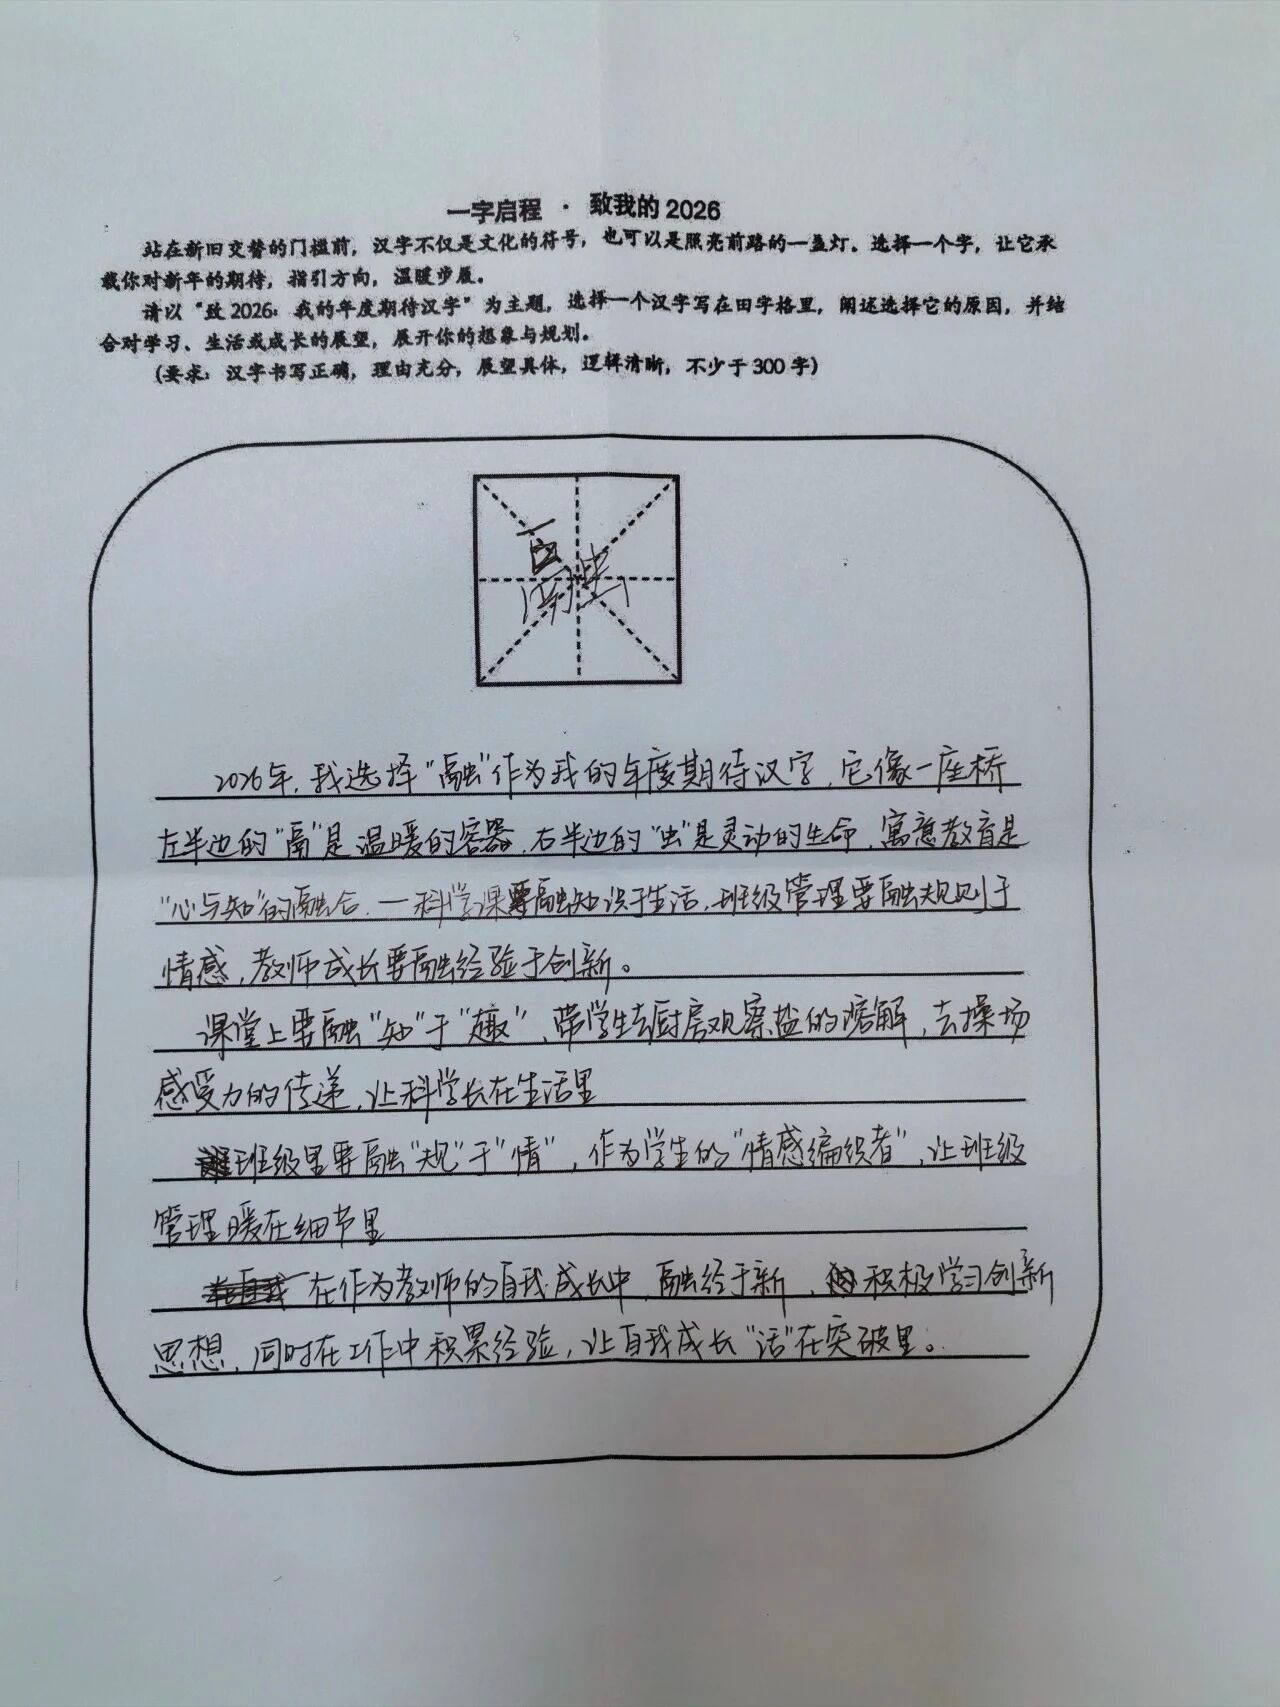 一字启程 · 致我的2026
站在新旧交替的门槛前，汉字不仅是文化的符号，也可以是照亮前路的一盏灯。选择一个字，让它承
载你对新年的期待，指引方向，温暖步履。
请以“致2026：我的年度期待汉字”为主题，选择一个汉字写在田字格里，阐述选择它的原因，并结
合对学习、生活或成长的展望，展开你的想象与规划。
（要求：汉字书写正确，理由充分，展望具体，逻辑清晰，不少于300字）
融
2026年，我选择“融”作为我的年度期待汉字，它像一座桥
左半边的“鬲”是温暖的容器，右半边的“虫”是灵动的生命，寓意教育是
“心与知”的融合，一科学课要融知识于生活，班级管理要融规则于
情感，教师成长要融经验于创新。
课堂上要融“知”于“趣”，带学生去厨房观察盐的溶解，去操场
感受力的传递，让科学长在生活里
班级里要融“规”于“情”，作为学生的“情感编织者”，让班级
管理暖在细节里
在作为教师的自我成长中，融经于新，积极学习创新
思想，同时在工作中积累经验，让自我成长“活”在突破里。